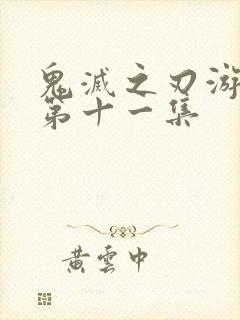 鬼滅之刃游
第十一集
黄雲中